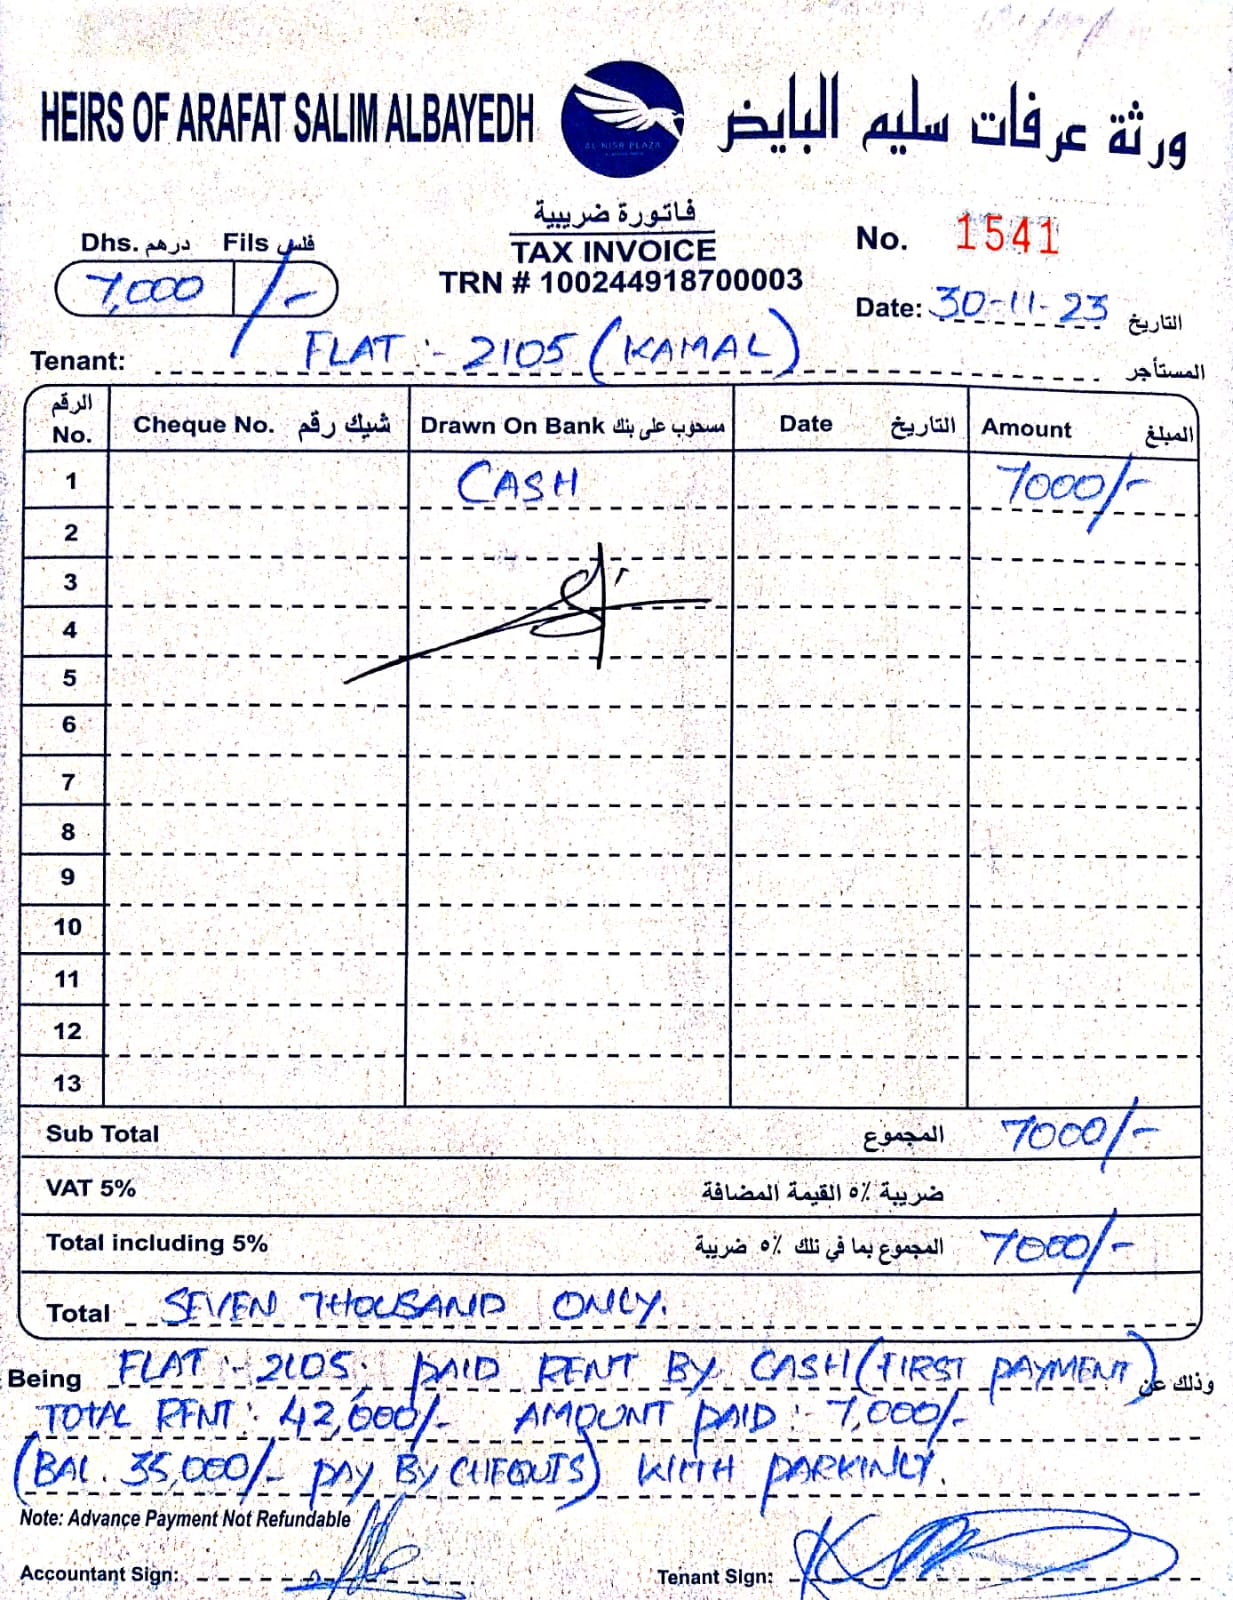 HEIRS OF ARAFAT SALIM ALBAYEDH
ورثة عرفات سليم البايض
AL NISR PLAZA
فاتورة ضريبية
TAX INVOICE
TRN # 100244918700003
Dhs. درهم Fils فلس
7,000 /-
No. 1541
Date: 30-11-23 التاريخ
Tenant: FLAT :- 2105 (KAMAL) المستأجر
الرقم No. Cheque No. شيك رقم Drawn On Bank مسحوب على بنك Date التاريخ Amount المبلغ
1 CASH 7000/-
2
3
4
5
6
7
8
9
10
11
12
13
Sub Total المجموع 7000/-
VAT 5% ضريبة ٥٪ القيمة المضافة
Total including 5% المجموع بما في تلك ٥٪ ضريبة 7000/-
Total SEVEN THOUSAND ONLY.
Being FLAT :- 2105, PAID RENT BY CASH (FIRST PAYMENT) وذلك عن
TOTAL RENT : 42,000/- AMOUNT PAID :- 7,000/-
(BAL. 35,000/- PAY BY CHEQUES) WITH PARKING.
Note: Advance Payment Not Refundable
Accountant Sign:
Tenant Sign: